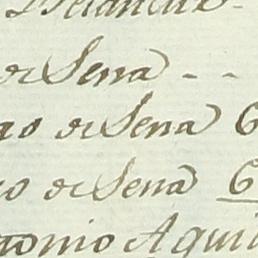 de Sena - -
go de Sena 6
o de Sena 6
tonio Agui